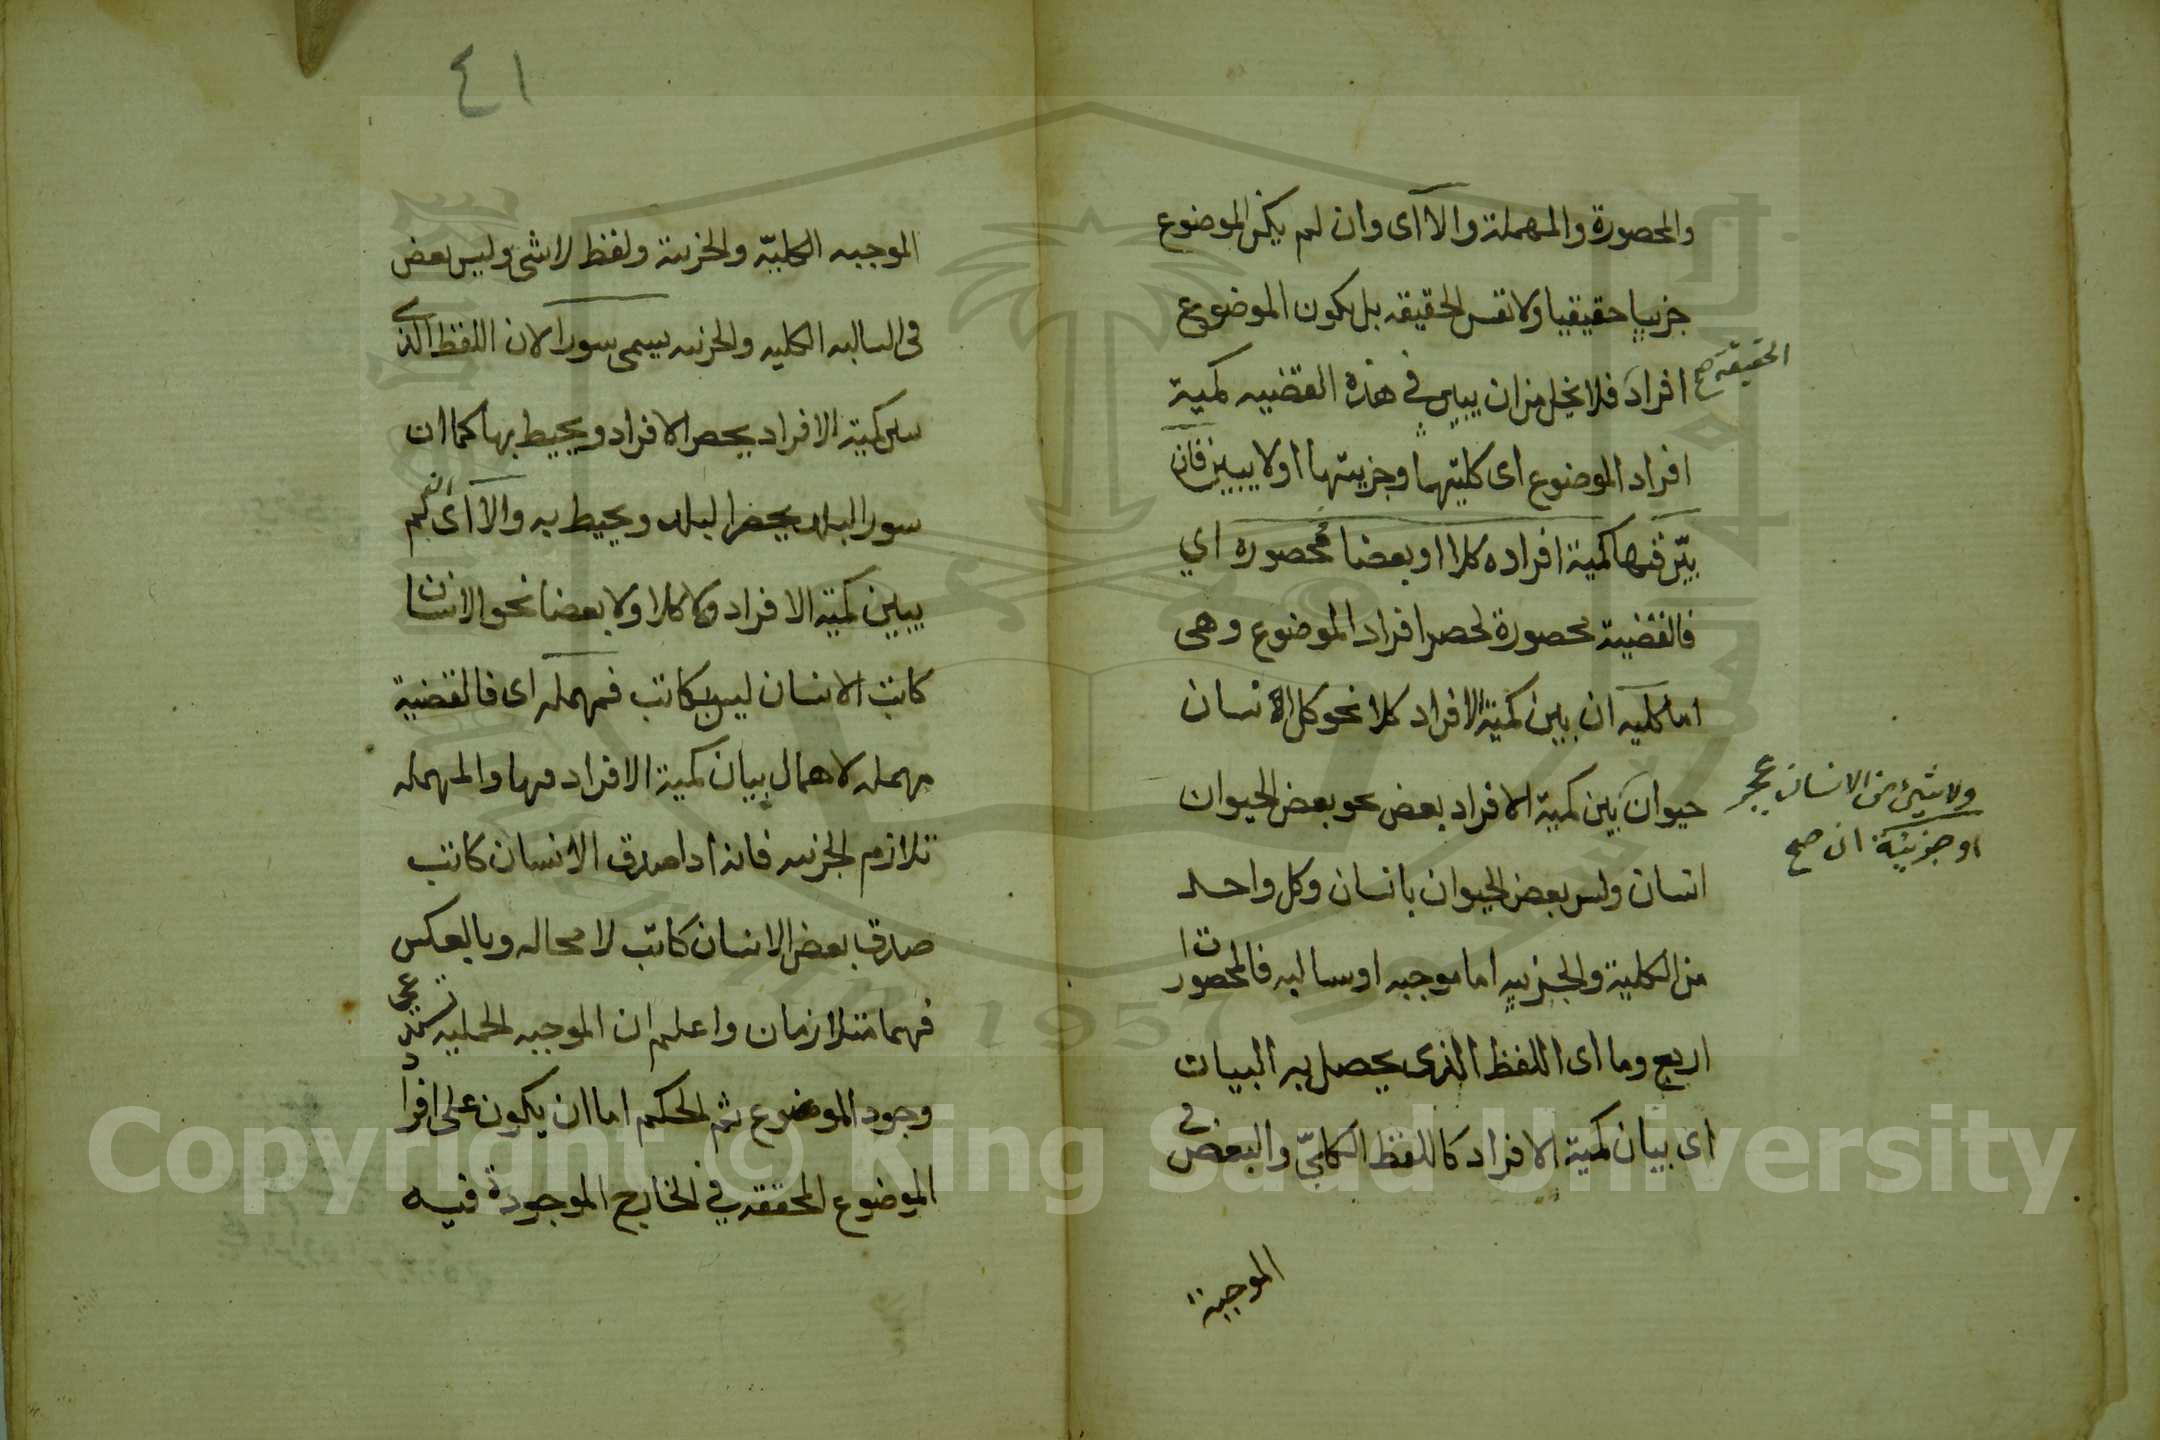 والمحصورة والمهملة والا اى وان لم يكن الموضوع
جزييا حقيقيا ولا نفس الحقيقه بل يكون الموضوع
افراد فلا يخل من ان يبين في هذه القضيه كمية
الحقيقة صح
افراد الموضوع اى كليتها وجزيتها اولا يبين فان
بيّن فيها كمية افراده كلا او بعضا فمحصوره اي
فالقضية محصورة لحصر افراد الموضوع وهى
اما كليه ان بين كمية الافراد كلا نحو كل انسان
حيوان بين كمية الافراد بعض نحو بعض الحيوان
ولا شيئ من الانسان بحجر
او جزئية ان صح
انسان وليس بعض الحيوان بانسان وكل واحد
من الكلية والجزييه اما موجبه او سالبه فالمحصورات
اربع وما اى اللفظ الذى يحصل به البيان
اى بيان كمية الافراد كاللفظ الكلّي والبعض في
الموجبة
٤١
الموجبه الكليّه والجزية ولفظ لا شى وليس بعض
فى السالبه الكليه والجزيه يسمى سورا لان اللفظ الذى
يبين كمية الافراد يحصر الافراد ويحيط بها كما ان
سور البلد يحصر البلد ويحيط به والا اى ان لم
يبين كمية الافراد لا كلا ولا بعضا نحو الانسان
كاتب الانسان ليس بكاتب فمهمله اى فالقضية
مهمله لاهمال بيان كمية الافراد فيها والمهمله
تلازم الجزيه فانه اذا صدق الانسان كاتب
صدق بعض الانسان كاتب لا محاله وبالعكس
فهما متلازمان واعلم ان الموجبه الحمليه تستدعى
وجود الموضوع ثم الحكم اما ان يكون على افراد
الموضوع المحققه في الخارج الموجودة فيه
Copyright © King Saud University
1957